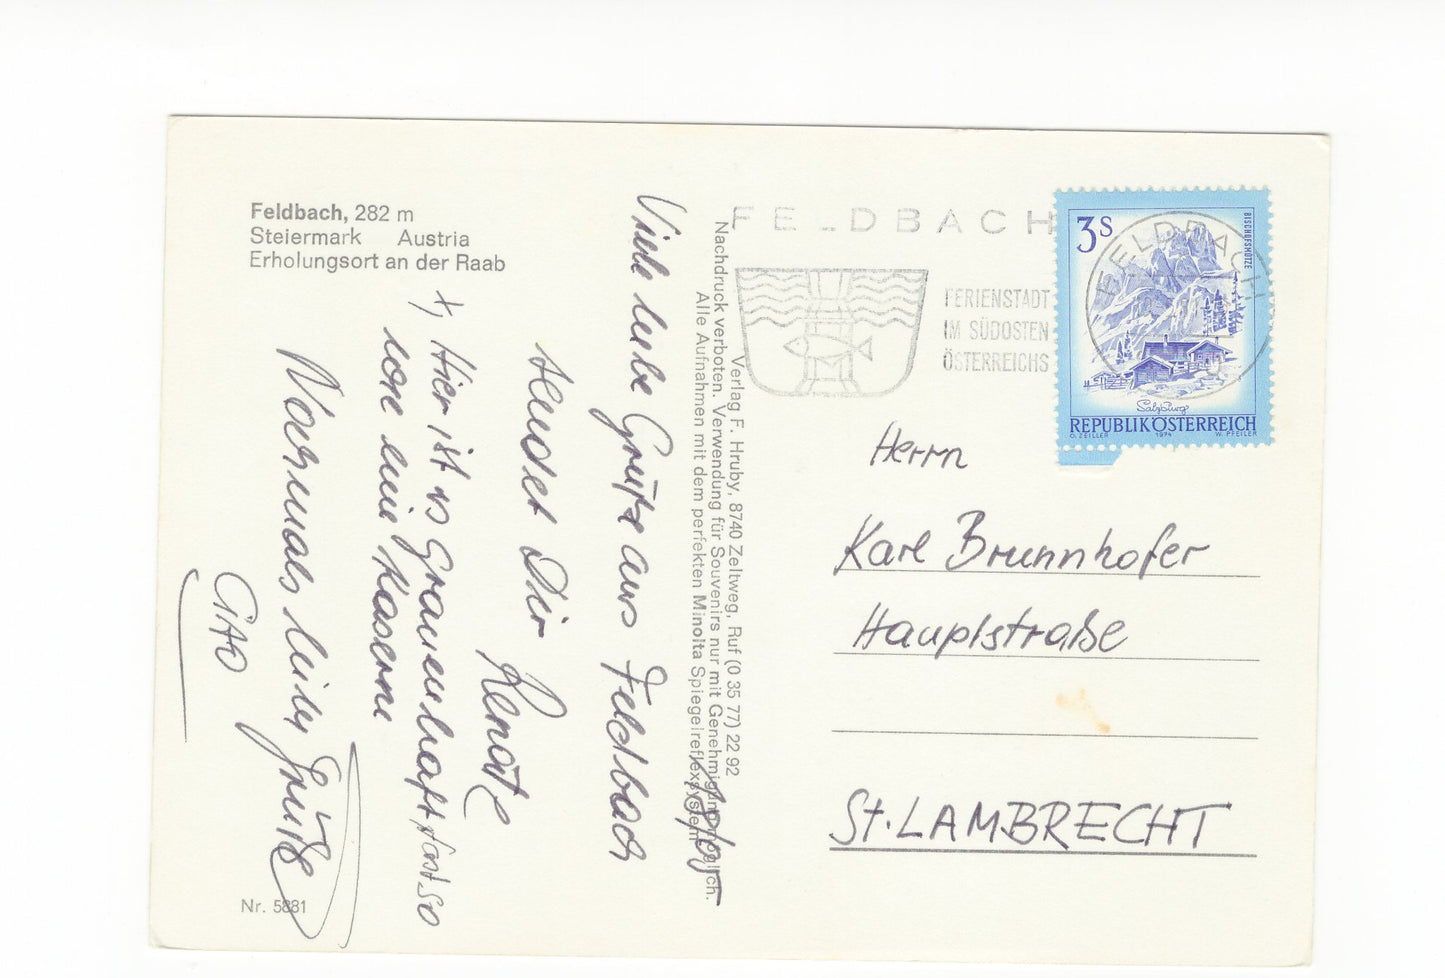 Feldbach, 282 m
Steiermark Austria
Erholungsort an der Raab
Viele liebe Grüße aus Feldbach
sendet Dir
Renate
x) Hier ist es grauenhaft, fast so
wie eine Kaserne
Nochmals liebe Grüße
Nr. 5881
Verlag F. Hruby, 8740 Zeltweg, Ruf (0 35 77) 22 92
Nachdruck verboten. Verwendung für Souvenirs nur mit Genehmigung möglich.
Alle Aufnahmen mit dem perfekten Minolta Spiegelreflexsystem
FELDBACH
FERIENSTADT
IM SÜDOSTEN
ÖSTERREICHS
FELDBACH
3S
BISCHOFSMÜTZE
Salzburg
REPUBLIK ÖSTERREICH
O. ZEILLER 1974 W. PFEILER
Herrn
Karl Brunnhofer
Hauptstraße
St. LAMBRECHT